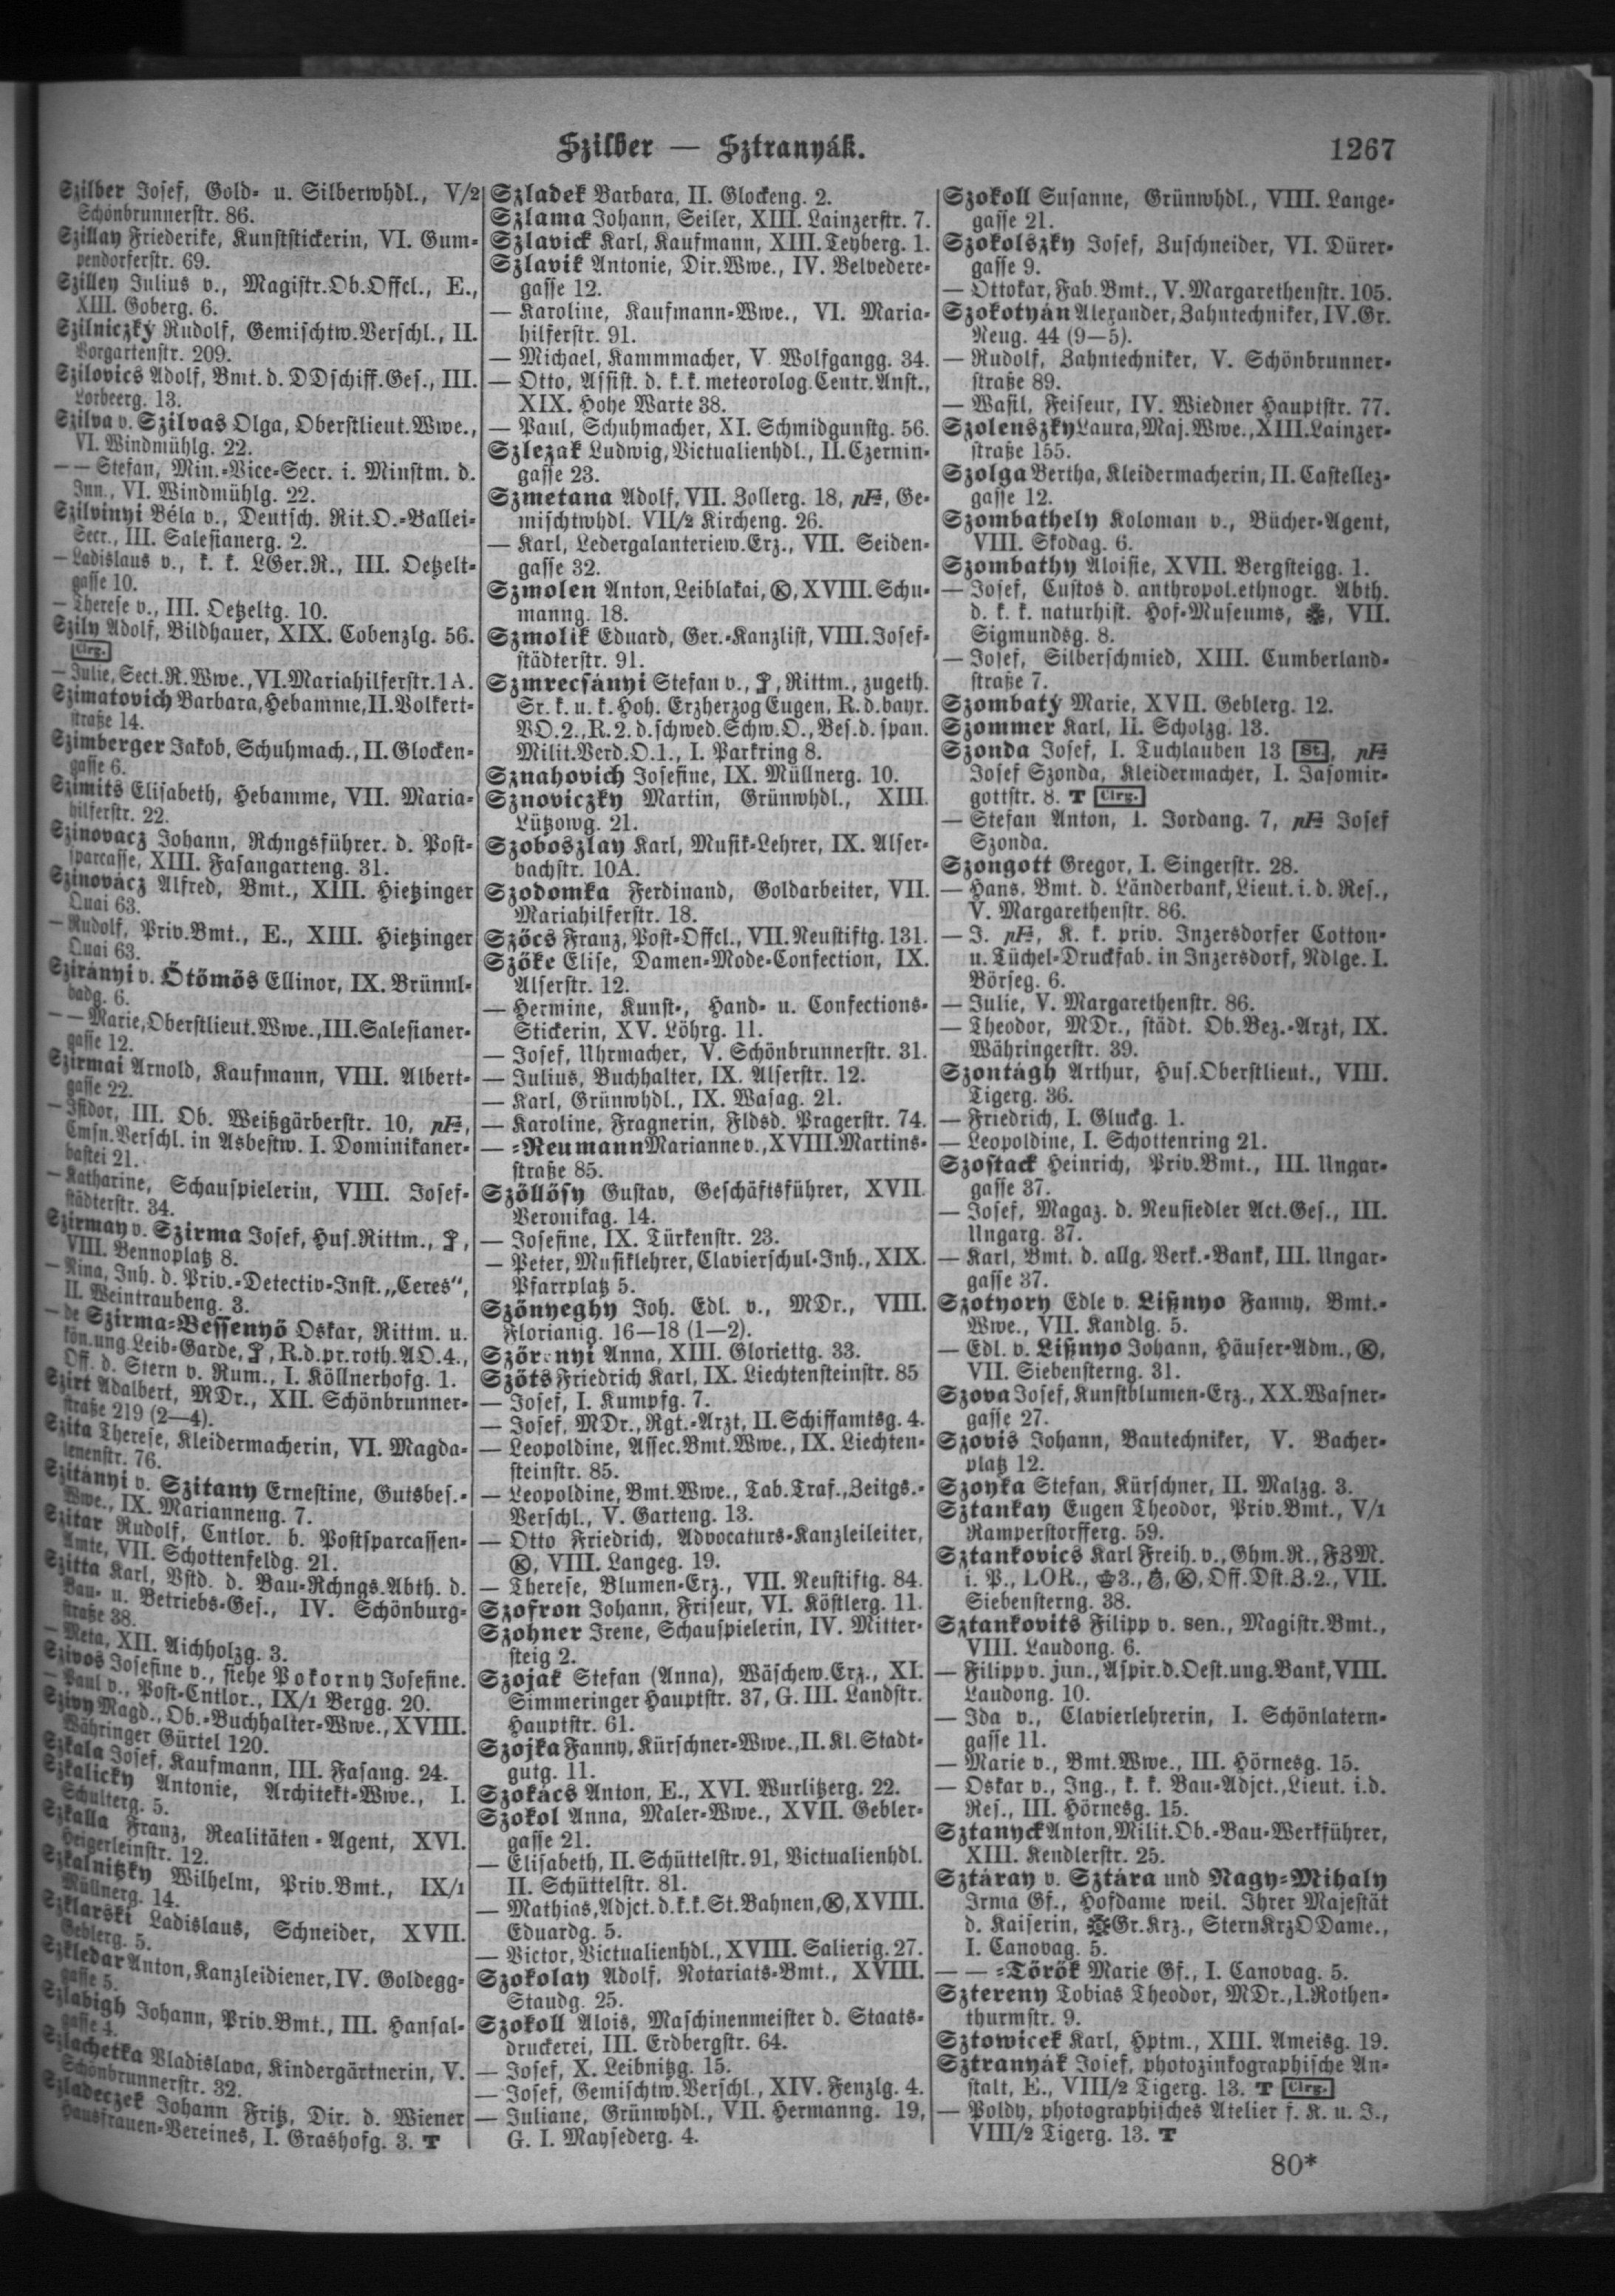 Szilber — Sztranyák.
1267
Szilber Josef, Gold- u. Silberwhdl., V/2
Schönbrunnerstr. 86.
Szillay Friederike, Kunststickerin, VI. Gum-
pendorferstr. 69.
Szilley Julius v., Magistr.Ob.Offcl., E.,
XIII. Goberg. 6.
Szilniczký Rudolf, Gemischtw.Verschl., II.
Vorgartenstr. 209.
Szilovics Adolf, Bmt. d. DDschiff.Ges., III.
Lorbeerg. 13.
Szilva v. Szilvas Olga, Oberstlieut.Wwe.,
VI. Windmühlg. 22.
— — Stefan, Min.-Vice-Secr. i. Minstm. d.
Inn., VI. Windmühlg. 22.
Szilvinyi Béla v., Deutsch. Rit.O.-Ballei-
Secr., III. Salesianerg. 2.
— Ladislaus v., k. k. LGer.R., III. Oetzelt-
gasse 10.
— Therese v., III. Oetzeltg. 10.
Szily Adolf, Bildhauer, XIX. Cobenzlg. 56.
Clrg.
— Julie, Sect.R.Wwe., VI.Mariahilferstr.1A.
Szimatovich Barbara, Hebamme, II.Volkert-
straße 14.
Szimberger Jakob, Schuhmach., II. Glocken-
gasse 6.
Szimits Elisabeth, Hebamme, VII. Maria-
hilferstr. 22.
Szinovacz Johann, Rchngsführer. d. Post-
sparcasse, XIII. Fasangarteng. 31.
Szinovácz Alfred, Bmt., XIII. Hietzinger
Quai 63.
— Rudolf, Priv.Bmt., E., XIII. Hietzinger
Quai 63.
Szirányi v. Ötömös Ellinor, IX. Brünnl-
badg. 6.
— — Marie, Oberstlieut.Wwe., III.Salesianer-
gasse 12.
Szirmai Arnold, Kaufmann, VIII. Albert-
gasse 22.
— Isidor, III. Ob. Weißgärberstr. 10, pF,
Cmsn.Verschl. in Asbestw. I. Dominikaner-
bastei 21.
— Katharine, Schauspielerin, VIII. Josef-
städterstr. 34.
Szirmay v. Szirma Josef, Hus.Rittm.,
VIII. Bennoplatz 8.
— Nina, Inh. d. Priv.-Detectiv-Inst. „Ceres“,
II. Weintraubeng. 3.
— de Szirma-Bessenyö Oskar, Rittm. u.
kön.ung.Leib-Garde, R.d.pr.roth.AO.4.,
Off. d. Stern v. Rum., I. Köllnerhofg. 1.
Szirt Adalbert, MDr., XII. Schönbrunner-
straße 219 (2—4).
Szita Therese, Kleidermacherin, VI. Magda-
lenenstr. 76.
Szitányi v. Szitany Ernestine, Gutsbes.-
Wwe., IX. Marianneng. 7.
Szitar Rudolf, Cntlor. b. Postsparcassen-
Amte, VII. Schottenfeldg. 21.
Szitta Karl, Vstd. d. Bau-Rchngs.Abth. d.
Bau- u. Betriebs-Ges., IV. Schönburg-
straße 38.
— Meta, XII. Aichholzg. 3.
Szivos Josefine v., siehe Pokorny Josefine.
— Paul v., Post-Cntlor., IX/1 Bergg. 20.
Szivy Magd., Ob.-Buchhalter-Wwe., XVIII.
Währinger Gürtel 120.
Szkala Josef, Kaufmann, III. Fasang. 24.
Szkalicky Antonie, Architekt-Wwe., I.
Schulterg. 5.
Szkalla Franz, Realitäten-Agent, XVI.
Heigerleinstr. 12.
Szkalnitzky Wilhelm, Priv.Bmt., IX/1
Müllnerg. 14.
Szklarski Ladislaus, Schneider, XVII.
Geblerg. 5.
Szkledar Anton, Kanzleidiener, IV. Goldegg-
gasse 5.
Szlabigh Johann, Priv.Bmt., III. Hansal-
gasse 4.
Szlachetka Vladislava, Kindergärtnerin, V.
Schönbrunnerstr. 32.
Szladeczek Johann Fritz, Dir. d. Wiener
Hausfrauen-Vereines, I. Grashofg. 3. T
Szladek Barbara, II. Glockeng. 2.
Szlama Johann, Seiler, XIII. Lainzerstr. 7.
Szlavick Karl, Kaufmann, XIII. Teyberg. 1.
Szlavik Antonie, Dir.Wwe., IV. Belvedere-
gasse 12.
— Karoline, Kaufmann-Wwe., VI. Maria-
hilferstr. 91.
— Michael, Kammmacher, V. Wolfgangg. 34.
— Otto, Assist. d. k. k. meteorolog.Centr.Anst.,
XIX. Hohe Warte 38.
— Paul, Schuhmacher, XI. Schmidgunstg. 56.
Szlezak Ludwig, Victualienhdl., II. Czernin-
gasse 23.
Szmetana Adolf, VII. Zollerg. 18, pF, Ge-
mischtwhdl. VII/2 Kircheng. 26.
— Karl, Ledergalanteriew.Erz., VII. Seiden-
gasse 32.
Szmolen Anton, Leiblakai, Ⓚ, XVIII. Schu-
manng. 18.
Szmolik Eduard, Ger.-Kanzlist, VIII. Josef-
städterstr. 91.
Szmrecsányi Stefan v., Rittm., zugeth.
Sr. k. u. k. Hoh. Erzherzog Eugen, R. d. bayr.
VO.2., R.2. d.schwed.Schw.O., Bes.d. span.
Milit.Verd.O.1., I. Parkring 8.
Sznahovich Josefine, IX. Müllnerg. 10.
Sznoviczky Martin, Grünwhdl., XIII.
Lützowg. 21.
Szoboszlay Karl, Musik-Lehrer, IX. Alser-
bachstr. 10A.
Szodomka Ferdinand, Goldarbeiter, VII.
Mariahilferstr. 18.
Szöcs Franz, Post-Offcl., VII. Neustiftg. 131.
Szöke Elise, Damen-Mode-Confection, IX.
Alserstr. 12.
— Hermine, Kunst-, Hand- u. Confections-
Stickerin, XV. Löhrg. 11.
— Josef, Uhrmacher, V. Schönbrunnerstr. 31.
— Julius, Buchhalter, IX. Alserstr. 12.
— Karl, Grünwhdl., IX. Wasag. 21.
— Karoline, Fragnerin, Fldsd. Pragerstr. 74.
— -Neumann Marianne v., XVIII.Martins-
straße 85.
Szöllösy Gustav, Geschäftsführer, XVII.
Veronikag. 14.
— Josefine, IX. Türkenstr. 23.
— Peter, Musiklehrer, Clavierschul-Inh., XIX.
Pfarrplatz 5.
Szönyeghy Joh. Edl. v., MDr., VIII.
Florianig. 16—18 (1—2).
Ször nyi Anna, XIII. Gloriettg. 33.
Szöts Friedrich Karl, IX. Liechtensteinstr. 85
— Josef, I. Kumpfg. 7.
— Josef, MDr., Rgt.-Arzt, II. Schiffamtsg. 4.
— Leopoldine, Assec.Bmt.Wwe., IX. Liechten-
steinstr. 85.
— Leopoldine, Bmt.Wwe., Tab.Traf., Zeitgs.-
Verschl., V. Garteng. 13.
— Otto Friedrich, Advocaturs-Kanzleileiter,
Ⓚ, VIII. Langeg. 19.
— Therese, Blumen-Erz., VII. Neustiftg. 84.
Szofron Johann, Friseur, VI. Köstlerg. 11.
Szohner Irene, Schauspielerin, IV. Mitter-
steig 2.
Szojak Stefan (Anna), Wäschew.Erz., XI.
Simmeringer Hauptstr. 37, G. III. Landstr.
Hauptstr. 61.
Szojka Fanny, Kürschner-Wwe., II. Kl. Stadt-
gutg. 11.
Szokács Anton, E., XVI. Wurlitzerg. 22.
Szokol Anna, Maler-Wwe., XVII. Gebler-
gasse 21.
— Elisabeth, II. Schüttelstr. 91, Victualienhdl.
II. Schüttelstr. 81.
— Mathias, Adjct. d. k. k. St.Bahnen, Ⓚ, XVIII.
Eduardg. 5.
— Victor, Victualienhdl., XVIII. Salierig. 27.
Szokolay Adolf, Notariats-Bmt., XVIII.
Staudg. 25.
Szokoll Alois, Maschinenmeister d. Staats-
druckerei, III. Erdbergstr. 64.
— Josef, X. Leibnitzg. 15.
— Josef, Gemischtw.Verschl., XIV. Fenzlg. 4.
— Juliane, Grünwhdl., VII. Hermanng. 19,
G. I. Maysederg. 4.
Szokoll Susanne, Grünwhdl., VIII. Lange-
gasse 21.
Szokolszky Josef, Zuschneider, VI. Dürer-
gasse 9.
— Ottokar, Fab.Bmt., V. Margarethenstr. 105.
Szokotyán Alexander, Zahntechniker, IV.Gr.
Neug. 44 (9—5).
— Rudolf, Zahntechniker, V. Schönbrunner-
straße 89.
— Wasil, Feiseur, IV. Wiedner Hauptstr. 77.
Szolenszky Laura, Maj.Wwe., XIII.Lainzer-
straße 155.
Szolga Bertha, Kleidermacherin, II. Castellez-
gasse 12.
Szombathely Koloman v., Bücher-Agent,
VIII. Skodag. 6.
Szombathy Aloisie, XVII. Bergsteigg. 1.
— Josef, Custos d. anthropol.ethnogr. Abth.
d. k. k. naturhist. Hof-Museums, VII.
Sigmundsg. 8.
— Josef, Silberschmied, XIII. Cumberland-
straße 7.
Szombatý Marie, XVII. Geblerg. 12.
Szommer Karl, II. Scholzg. 13.
Szonda Josef, I. Tuchlauben 13 St., pF
Josef Szonda, Kleidermacher, I. Jasomir-
gottstr. 8. T Clrg.
— Stefan Anton, I. Jordang. 7, pF Josef
Szonda.
Szongott Gregor, I. Singerstr. 28.
— Hans, Bmt. d. Länderbank, Lieut. i. d. Res.,
V. Margarethenstr. 86.
— J. pF, K. k. priv. Inzersdorfer Cotton-
u. Tüchel-Druckfab. in Inzersdorf, Ndlge. I.
Börseg. 6.
— Julie, V. Margarethenstr. 86.
— Theodor, MDr., städt. Ob.Bez.-Arzt, IX.
Währingerstr. 39.
Szontágh Arthur, Hus.Oberstlieut., VIII.
Tigerg. 36.
— Friedrich, I. Gluckg. 1.
— Leopoldine, I. Schottenring 21.
Szostack Heinrich, Priv.Bmt., III. Ungar-
gasse 37.
— Josef, Magaz. d. Neusiedler Act.Ges., III.
Ungarg. 37.
— Karl, Bmt. d. allg. Verk.-Bank, III. Ungar-
gasse 37.
Szotyory Edle v. Lißnyo Fanny, Bmt.-
Wwe., VII. Kandlg. 5.
— Edl. v. Lißnyo Johann, Häuser-Adm., Ⓚ,
VII. Siebensterng. 31.
Szova Josef, Kunstblumen-Erz., XX.Wasner-
gasse 27.
Szovis Johann, Bautechniker, V. Bacher-
platz 12.
Szoyka Stefan, Kürschner, II. Malzg. 3.
Sztankay Eugen Theodor, Priv.Bmt., V/1
Ramperstorfferg. 59.
Sztankovics Karl Freih. v., Ghm.R., FZM.
i. P., LOR., 3., Ⓚ, Off. Ost.Z.2., VII.
Siebensterng. 38.
Sztankovits Filipp v. sen., Magistr.Bmt.,
VIII. Laudong. 6.
— Filipp v. jun., Aspir.d.Oest.ung.Bank, VIII.
Laudong. 10.
— Ida v., Clavierlehrerin, I. Schönlatern-
gasse 11.
— Marie v., Bmt.Wwe., III. Hörnesg. 15.
— Oskar v., Ing., k. k. Bau-Adjct., Lieut. i.d.
Res., III. Hörnesg. 15.
Sztanyck Anton, Milit.Ob.-Bau-Werkführer,
XIII. Kendlerstr. 25.
Sztáray v. Sztára und Nagy-Mihaly
Irma Gf., Hofdame weil. Ihrer Majestät
d. Kaiserin, Gr.Krz., SternKrzODame.,
I. Canovag. 5.
— — -Török Marie Gf., I. Canovag. 5.
Sztereny Tobias Theodor, MDr., I. Rothen-
thurmstr. 9.
Sztowicek Karl, Hptm., XIII. Ameisg. 19.
Sztranyák Josef, photozinkographische An-
stalt, E., VIII/2 Tigerg. 13. T Clrg.
— Poldy, photographisches Atelier f. K. u. J.,
VIII/2 Tigerg. 13. T
80*